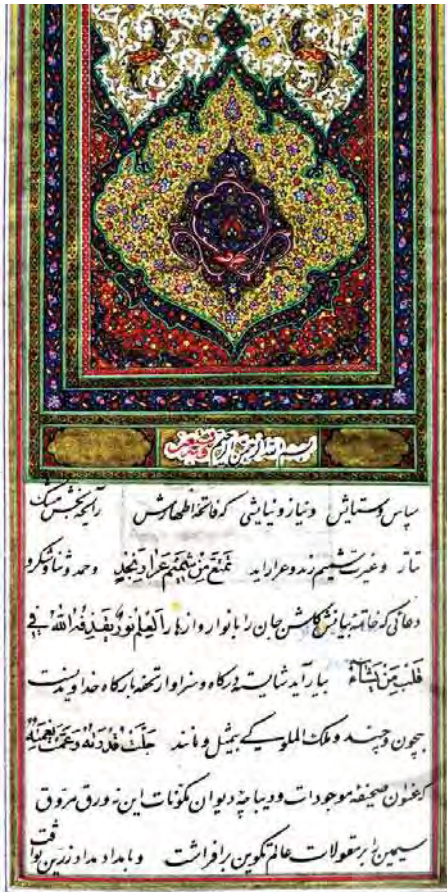 بسم الله الرحمن الرحیم
سپاس و ستایش و نیاز و نیایشی که فاتحهٔ اظهارش رایحه‌بخش مشک
تتار و غیرت شمیم رند و عرار آید تمتع من شمیم عرار نجد و حمد و ثنا و شکر و
دعائی که خاتمهٔ بیانش گلشن جان را بانوار و ازهار العلم نور یقذفه الله فی
قلب من یشاء بیاراید شایستهٔ درگاه و سزاوار تحفهٔ بارگاه خداوندیست
بیچون و چند و ملک الملوکی بیمثل و مانند جلت قدرته و عمت نعمته
که عنوان صحیفهٔ موجودات و دیباچهٔ دیوان مکونات این نه ورق مروق
سیمین را بر مقولات عالم تکوین برافراشت و بامداد مداد زرین